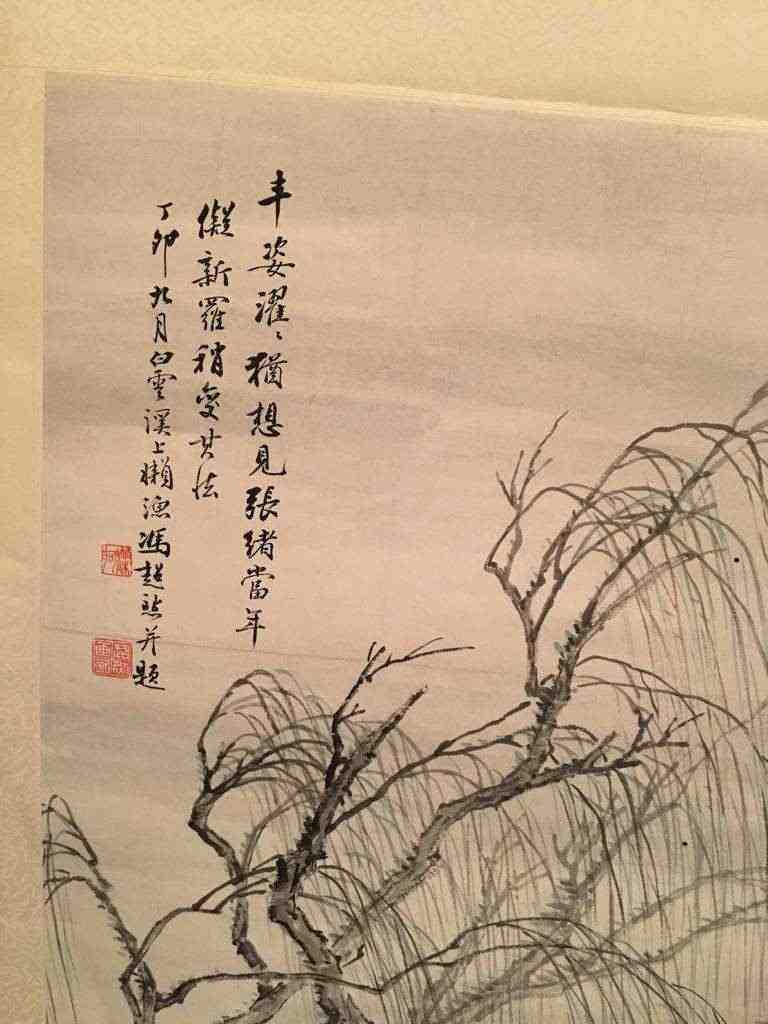 丰姿濯〻猶想見張緒當年
儗新羅稍變其法
丁卯九月白雲溪上懶漁馮超然并題